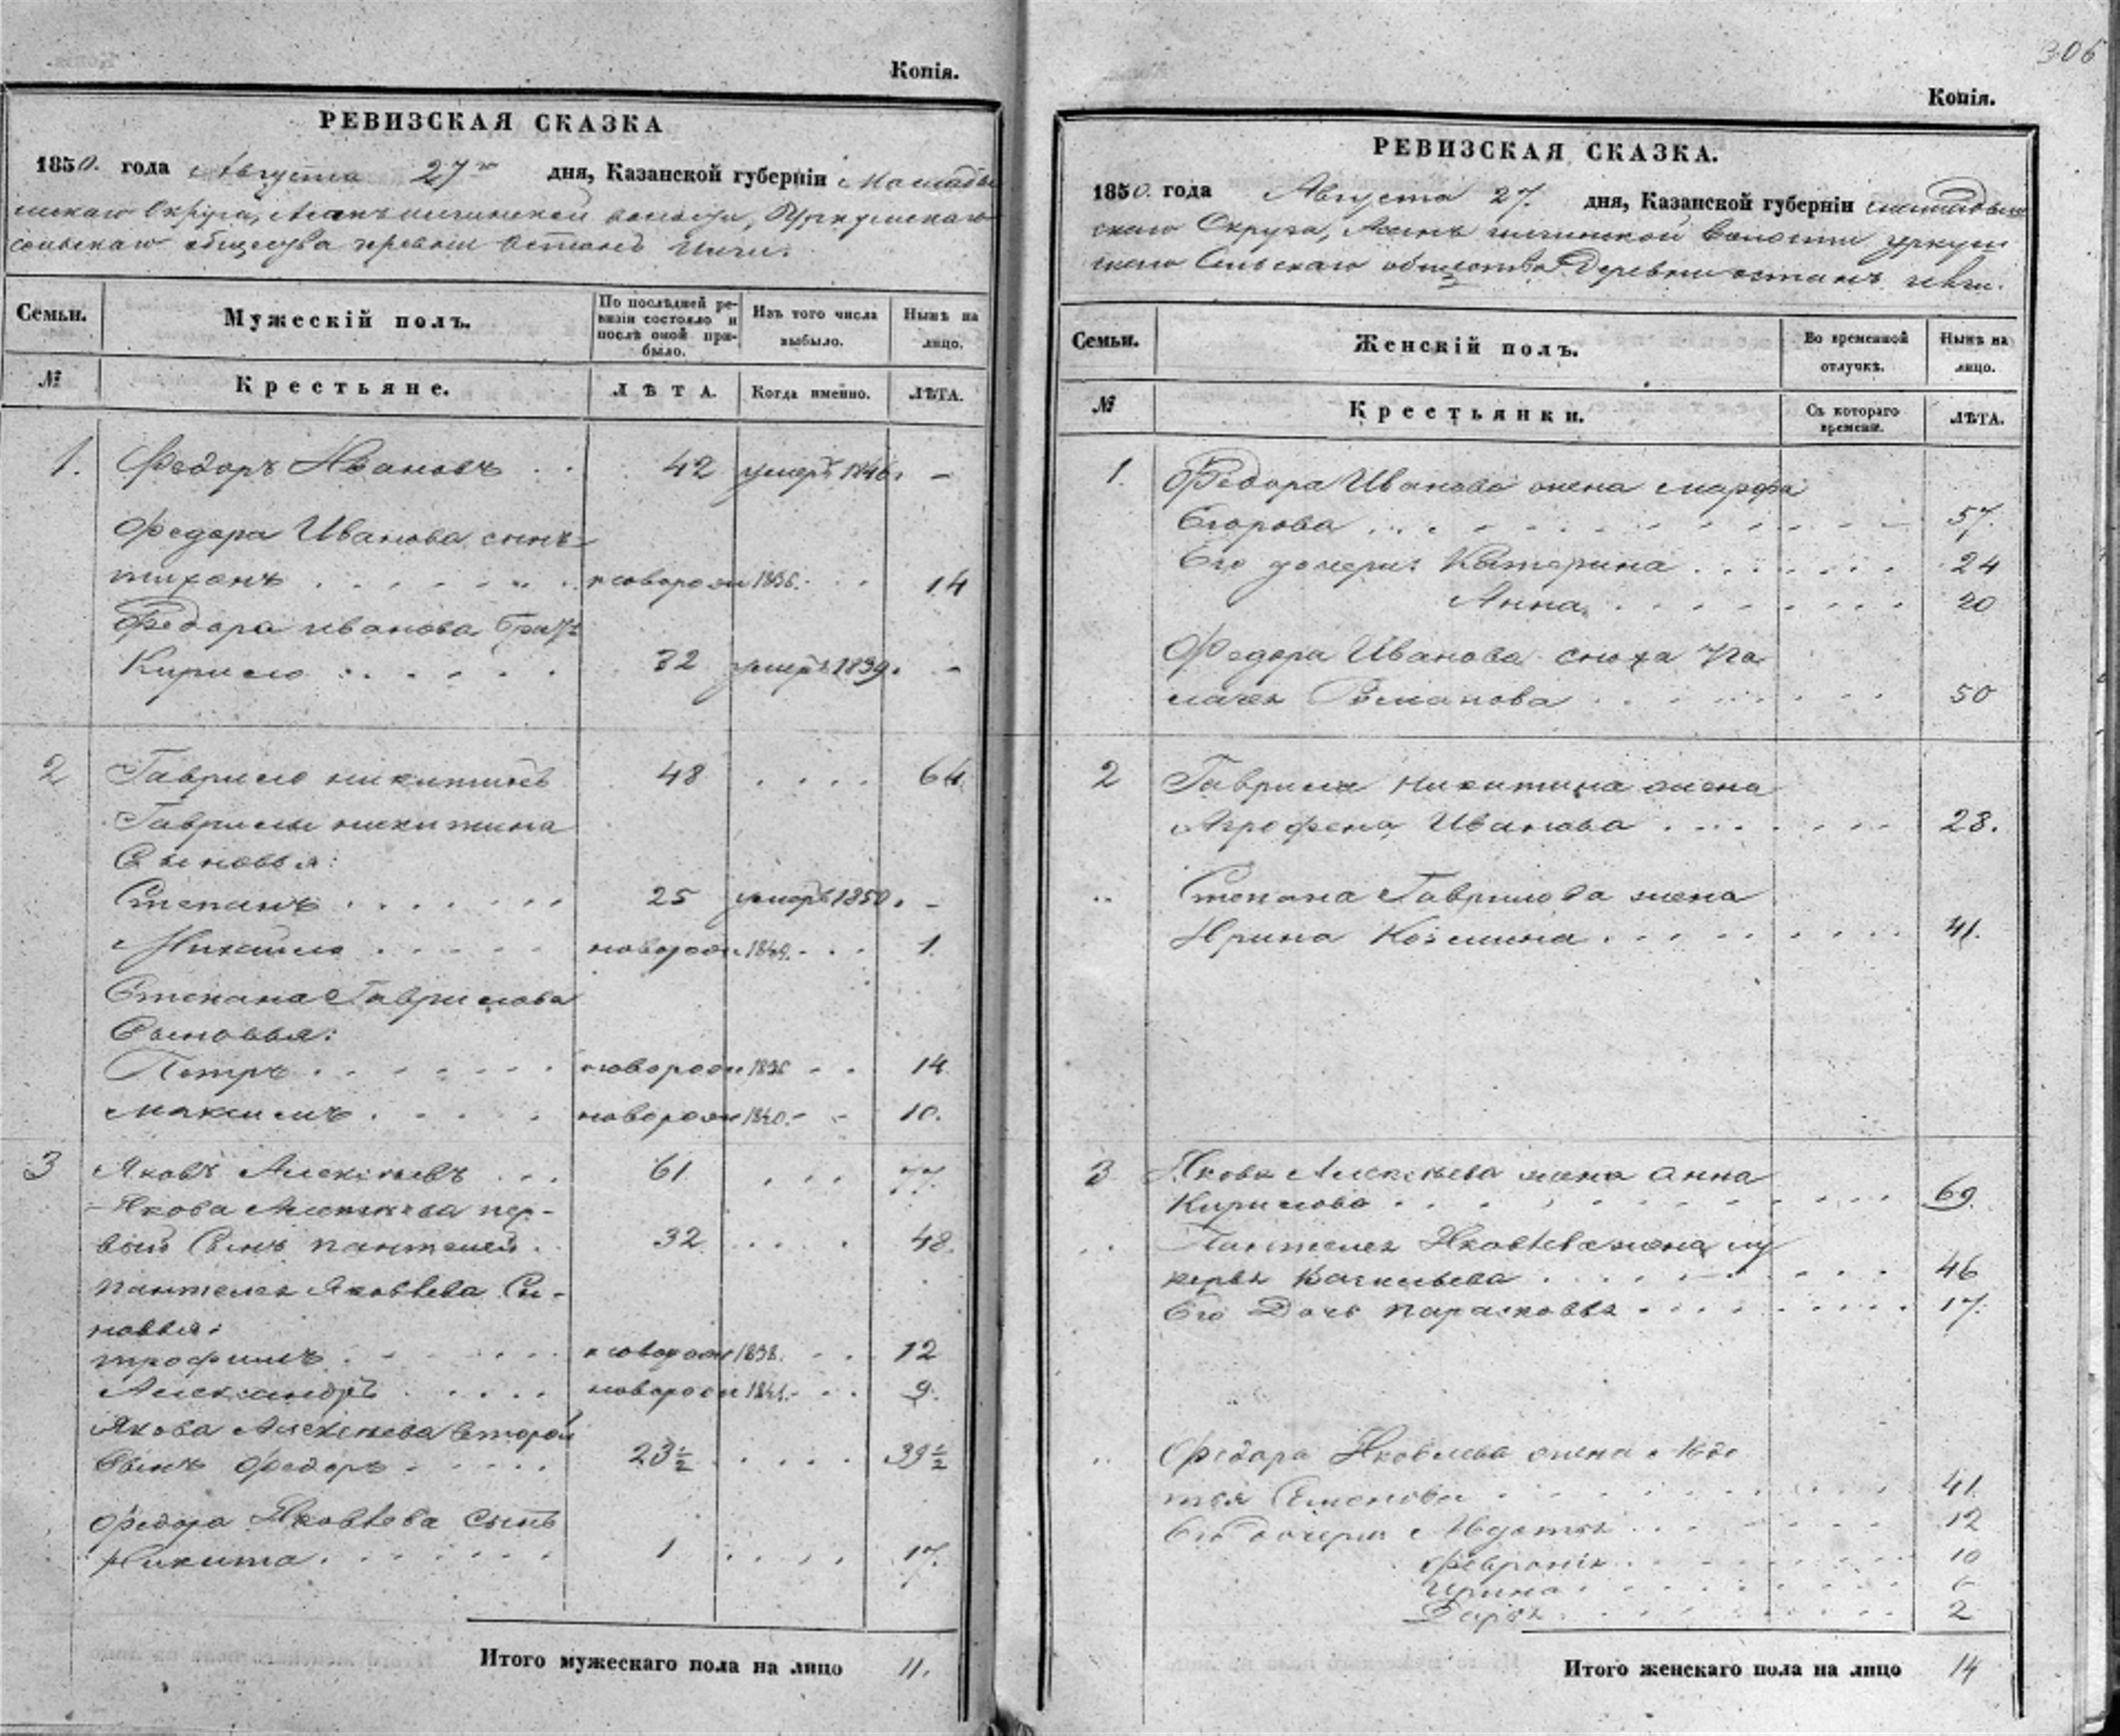 Копія.
РЕВИЗСКАЯ СКАЗКА
1850. года Августа 27го дня, Казанской губерніи Мамады
шскаго Округа,
сельскаго общества деревни Останъ Чичи.
Семьи.
Мужескій полъ.
По послѣдней ре-
визіи состояло и
послѣ оной при-
было.
Изъ того числа
выбыло.
Нынѣ на
лицо.
№
Крестьяне.
ЛѢТА.
Когда именно.
ЛѢТА.
1. Федоръ Ивановъ . . 42 умеръ 1846. -
Федора Иванова сынъ
тиханъ . . . . . . новорожд 1836. . . 14
Федора иванова братъ
Кирило . . . . . 32 умеръ 1839. -
2 Гаврило никитинъ 48 . . . . 64.
Гаврилы никитина
Сыновья:
Степанъ . . . . . . 25 умеръ 1850. -
Михайло . . . . . новорож 1849. - . . 1.
Степана Гаврилова
Сыновья:
Петръ . . . . . . новорож 1836 - . 14
максимъ . . . . . новорож 1840. - - 10.
3 Яковъ Алексѣевъ . . . 61 . . . 77.
Якова Алексѣева пер-
вой Сынъ пантелей . 32 . . . . 48.
пантелея Яковлева Сы-
новья:
трофимъ . . . . . . новорож 1838. . . 12
Александръ . . . . . новорож 1841. - . . 9.
Якова Алексѣева второй
Сынъ Федоръ - . . . . 23½ . . . . 39½
Федора Яковлева Сынъ
Никита . . . . . . 1 . . . . 17.
Итого мужескаго пола на лицо 11.
306
Копія.
РЕВИЗСКАЯ СКАЗКА.
1850. года Августа 27. дня, Казанской губерніи мамадыш
скаго Округа, волости уркуш
скаго Сельскаго общества Деревни останъ чичи.
Семьи.
Женскій полъ.
Во временной
отлучкѣ.
Нынѣ на
лицо.
№
Крестьянки.
Съ котораго
времени.
ЛѢТА.
1. Федора Иванова жена марфа
Егорова . . . . . . . . . . 57.
Его дочери: Катерина . . . . . . 24
Анна . . . . . . . . 20
Федора Иванова сноха
Романова . . . . . . . 50
2 Гаврила Никитина жена
Агрофена Иванова . . . . . . 28.
.. Степана Гаврилова жена
Ирина Козмина . . . . . . . . 41.
3 Якова Алексѣева жена анна
Кирилова . . . . . . . . . . 69.
.. Пантелея Яковлева жена лу
керья Васильева . . . . . . . . 46
Его Дочь парасковья . . . . . . . 17.
.. Федора Яковлева жена Авдо
тья Семенова . . . . . . . . . 41.
Его дочери Авдотья . . . . . . . 12
Февронія . . . . . . 10
Ирина . . . . . . .
Дарья . . . . . . . 2
Итого женскаго пола на лицо 14